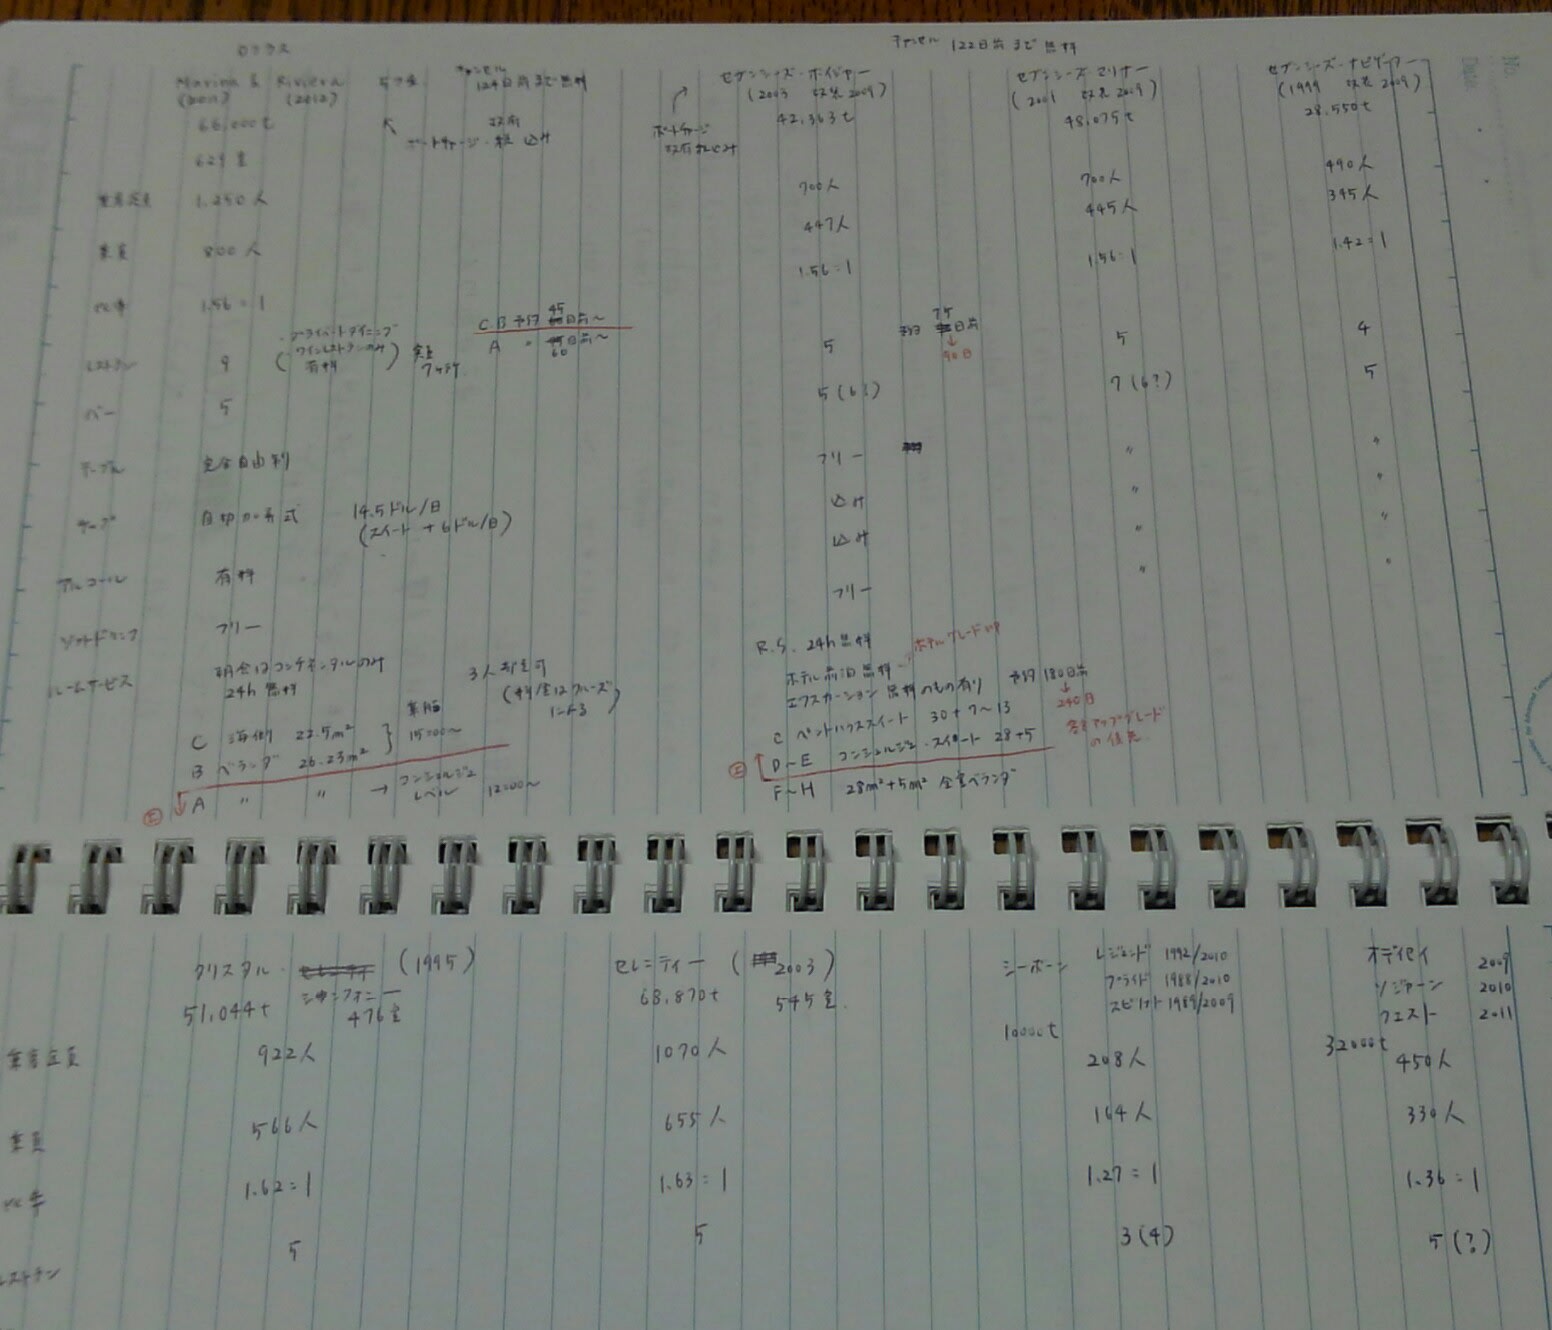 キャンセル 122日前まで無料
Marina & Riviera
(2011) (2012)
キャンセル
124日前まで無料
セブンシーズ・ボイジャー
(2003 改装2009)
セブンシーズマリナー
(2001 改装2009)
セブンシーズ・ナビゲーター
(1999 改装2009)
66,000t
42,363t
48,075t
28,550t
ポートチャージ
629室
乗客定員 1,250人
700人 700人 490人
乗員 800人
447人 445人 345人
比率 1.56=1
1.56=1 1.56=1 1.42=1
レストラン 9
プライベートダイニング
ワインレストランのみ
有料
C.B 予約 45日前~
A 〃 60日前~
5
予約 75日前
↓
90日
5 4
バー 5
5(6?) 7(6?) 5
テーブル 完全自由制
フリー 〃 〃
チップ 自動加算式 14.5ドル/日
(スイート +6ドル/日)
込み 〃 〃
アルコール 有料
込み 〃 〃
ソフトドリンク フリー
フリー 〃 〃
ルームサービス 朝食はコンチネンタルのみ
24h無料
3人部屋可
(料金はクルーズ
による)
C 海側 22.5m²
B ベランダ 26.23m²
15:00~
A 〃 〃 → コンシェルジュ
レベル 12:00~
R.S. 24h無料
ホテル前泊無料 ホテルグレードUP
エクスカーション 無料のもの有り 予約 180日前
↓
240日
C ペントハウススイート 30+7~13
D~E コンシェルジュ・スイート 28+5
F~H 28m²+5m² 全室ベランダ
アップグレード
の優先
クリスタル・ シンフォニー (1995)
51,044t 476室
セレニティー (2003)
68,870t 545室
シーボーン レジェンド 1992/2010
プライド 1988/2010
スピリット 1989/2009
10000t
オデッセイ 2009
ソジャーン 2010
クエスト 2011
32000t
乗客定員 922人 1070人 208人 450人
乗員 566人 655人 164人 330人
比率 1.62=1 1.63=1 1.27=1 1.36=1
レストラン 5 5 3(4) 5(?)